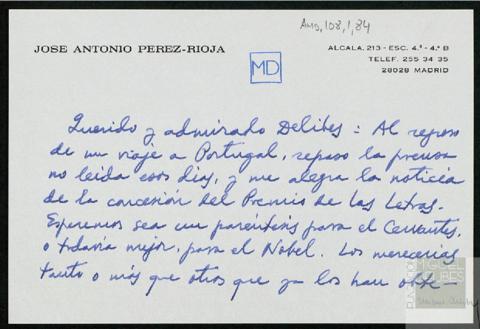 AMD, 108, 1, 84
JOSE ANTONIO PEREZ-RIOJA
ALCALA, 213 - ESC. 4.ª - 4.º B
TELEF. 255 34 35
28028 MADRID
MD
Querido y admirado Delibes: Al regreso
de un viaje a Portugal, repaso la prensa
no leida esos días, y me alegra la noticia
de la concesión del Premio de las Letras.
Esperemos sea un paréntesis para el Cervantes,
o todavía mejor, para el Nobel. Los merecerías
tanto o más que otros que ya los han obte-
FUNDACIÓN
MIGUEL
DELIBES